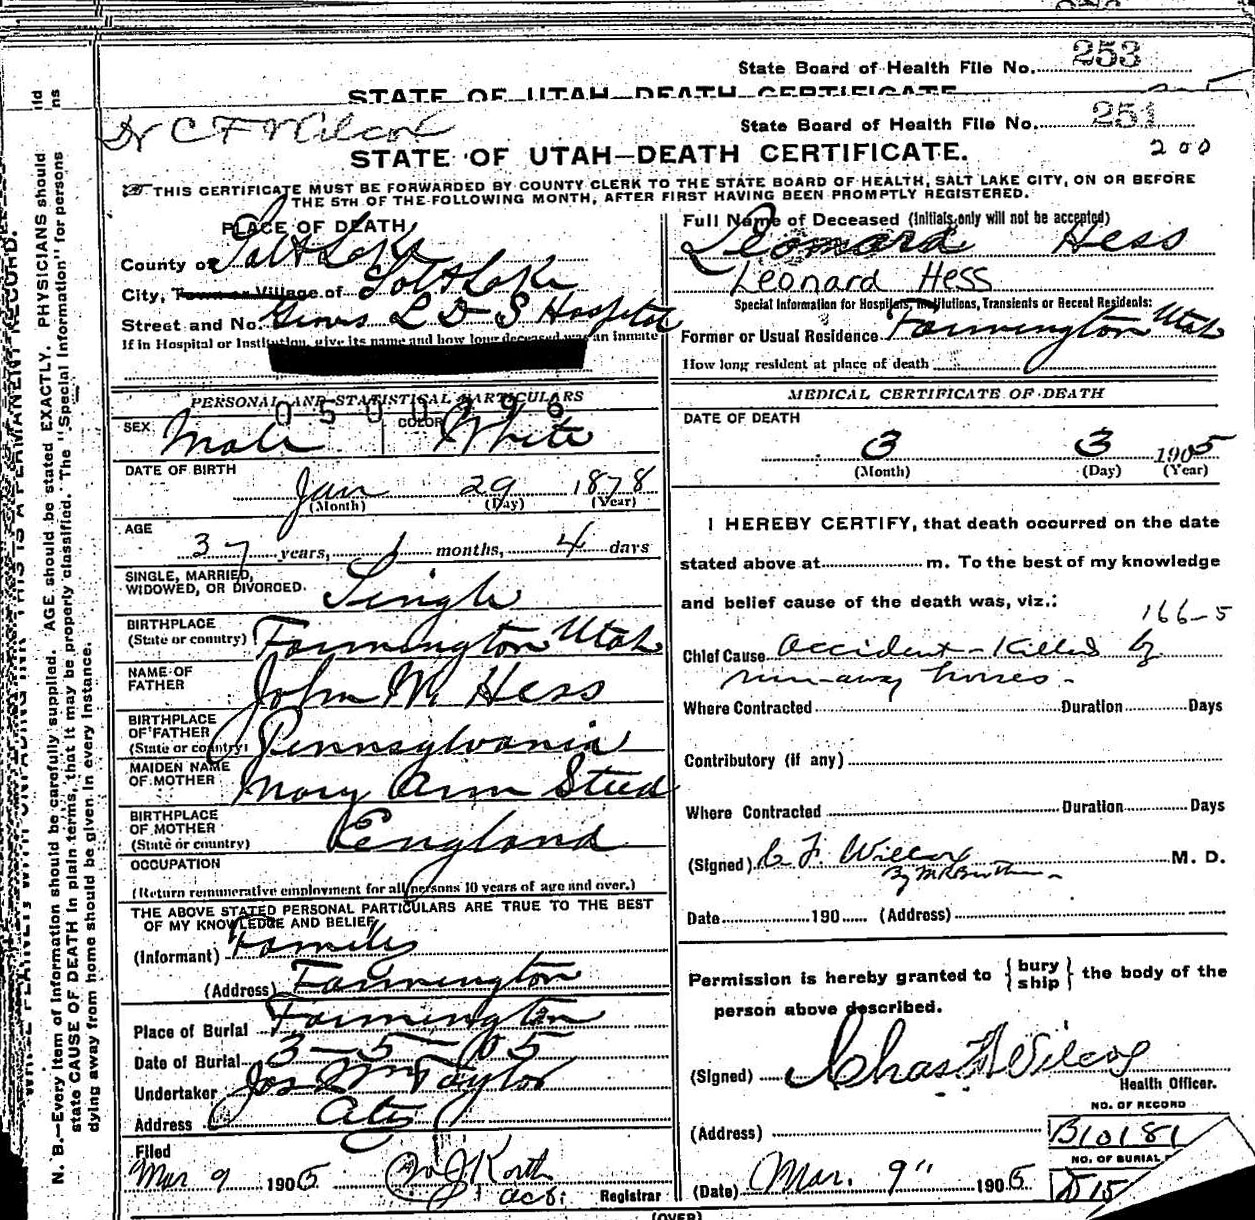 State Board of Health File No. 253
STATE OF UTAH—DEATH CERTIFICATE
Dr C F Wilcox
State Board of Health File No. 251
STATE OF UTAH—DEATH CERTIFICATE.
200
THIS CERTIFICATE MUST BE FORWARDED BY COUNTY CLERK TO THE STATE BOARD OF HEALTH, SALT LAKE CITY, ON OR BEFORE
THE 5TH OF THE FOLLOWING MONTH, AFTER FIRST HAVING BEEN PROMPTLY REGISTERED.
PLACE OF DEATH
County of Salt Lake
City, Town or Village of Salt Lake
Street and No. L D S Hospital
If in Hospital or Institution, give its name and how long deceased was an inmate
PERSONAL AND STATISTICAL PARTICULARS
0500396
SEX Male COLOR White
DATE OF BIRTH
Jan 29 1878
(Month) (Day) (Year)
AGE
37 years, 1 months, 4 days
SINGLE, MARRIED,
WIDOWED, OR DIVORCED. Single
BIRTHPLACE
(State or country) Farmington Utah
NAME OF
FATHER John W. Hess
BIRTHPLACE
OF FATHER
(State or country) Pennsylvania
MAIDEN NAME
OF MOTHER Mary Ann Steed
BIRTHPLACE
OF MOTHER
(State or country) England
OCCUPATION
(Return remunerative employment for all persons 10 years of age and over.)
THE ABOVE STATED PERSONAL PARTICULARS ARE TRUE TO THE BEST
OF MY KNOWLEDGE AND BELIEF
(Informant) Family
(Address) Farmington
Place of Burial Farmington
Date of Burial 3—5—05
Undertaker Jos Wm Taylor
Address City
Filed
Mar 9 1905
Registrar
(OVER)
Full Name of Deceased (Initials only will not be accepted)
Leonard Hess
Leonard Hess
Special Information for Hospitals, Institutions, Transients or Recent Residents:
Former or Usual Residence Farmington Utah
How long resident at place of death
MEDICAL CERTIFICATE OF DEATH
DATE OF DEATH
3 3 1905
(Month) (Day) (Year)
I HEREBY CERTIFY, that death occurred on the date
stated above at m. To the best of my knowledge
and belief cause of the death was, viz.:
166-5
Chief Cause Accident - Killed by
run-away horses.
Where Contracted Duration Days
Contributory (if any)
Where Contracted Duration Days
(Signed) C F Wilcox M. D.
Date 190 (Address)
Permission is hereby granted to {bury ship} the body of the
person above described.
(Signed) Chas F Wilcox
Health Officer.
NO. OF RECORD
(Address) B10181
NO. OF BURIAL
(Date) Mar. 9" 1905
N. B.—Every item of information should be carefully supplied. AGE should be stated EXACTLY. PHYSICIANS should
state CAUSE OF DEATH in plain terms, that it may be properly classified. The "Special Information" for persons
dying away from home should be given in every instance.